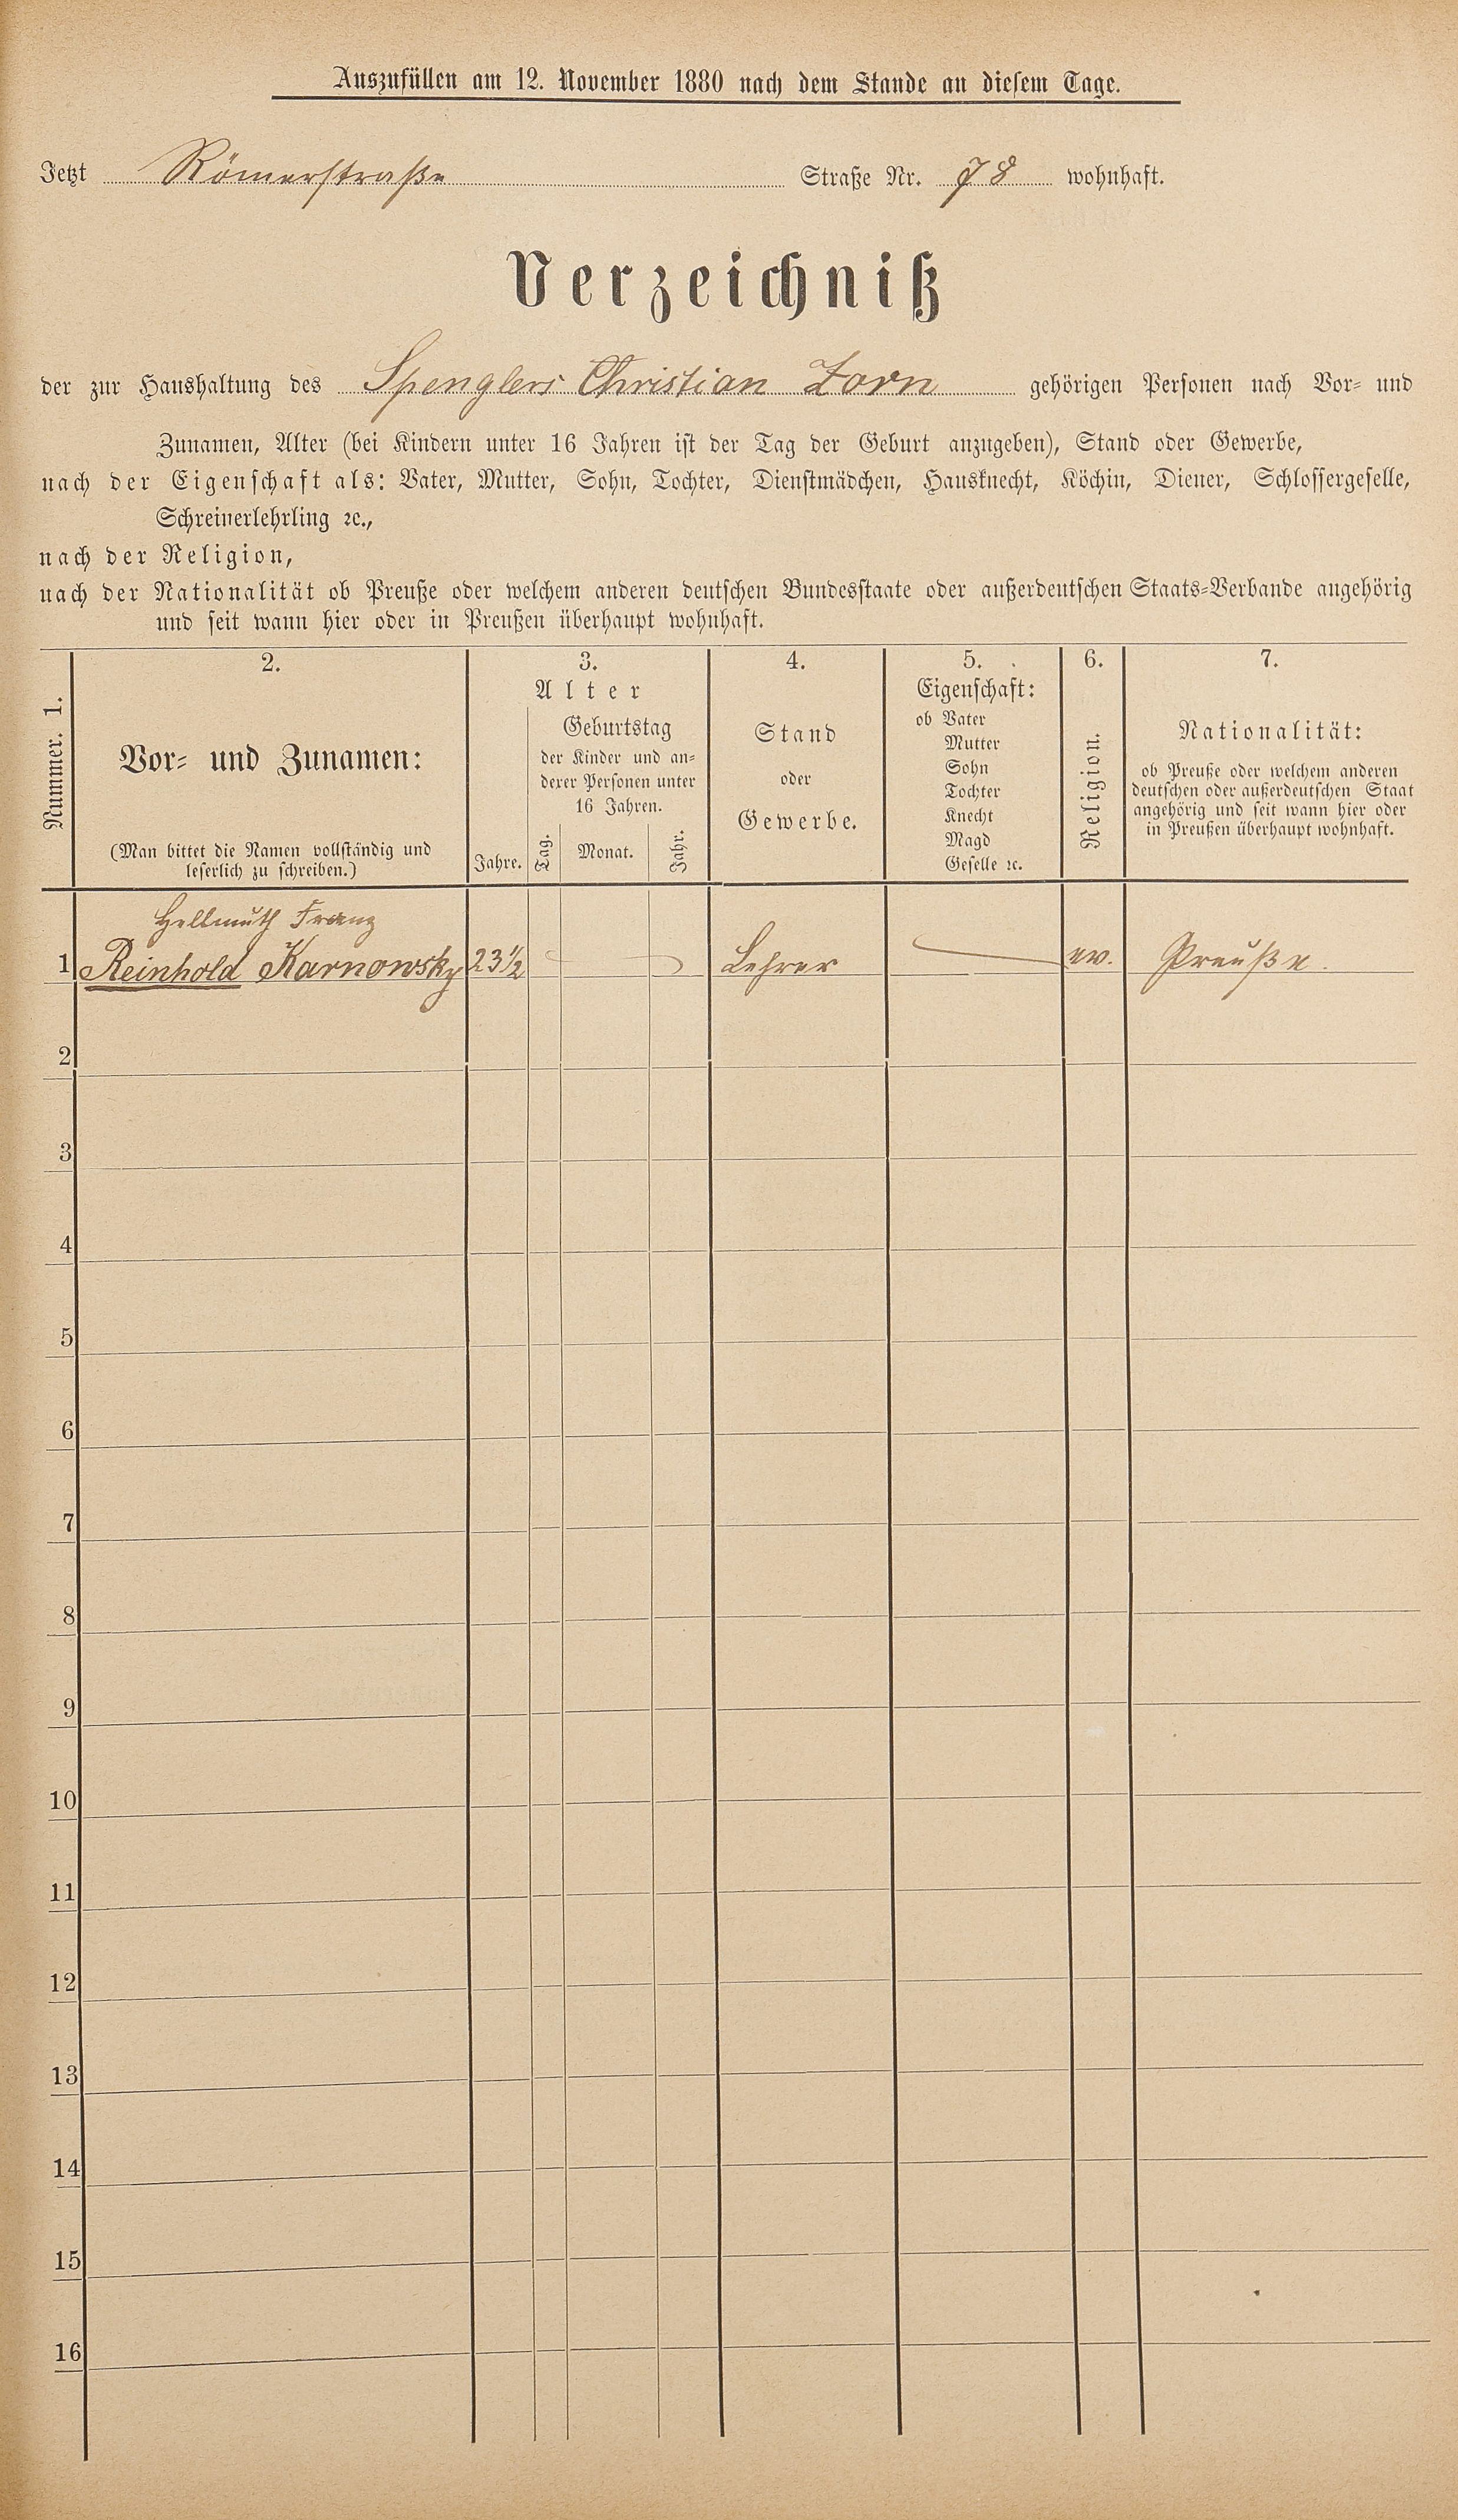 Auszufüllen am 12. November 1880 nach dem Stande an diesem Tage.
Jetzt Römerstraße Straße Nr. 78 wohnhaft.
Verzeichniß
der zur Haushaltung des Spenglers Christian Zorn gehörigen Personen nach Vor- und
Zunamen, Alter (bei Kindern unter 16 Jahren ist der Tag der Geburt anzugeben), Stand oder Gewerbe,
nach der Eigenschaft als: Vater, Mutter, Sohn, Tochter, Dienstmädchen, Hausknecht, Köchin, Diener, Schlossergeselle,
Schreinerlehrling ꝛc.,
nach der Religion,
nach der Nationalität ob Preuße oder welchem anderen deutschen Bundesstaate oder außerdeutschen Staats-Verbande angehörig
und seit wann hier oder in Preußen überhaupt wohnhaft.
Nummer. 1.
2.
Vor- und Zunamen:
(Man bittet die Namen vollständig und
leserlich zu schreiben.)
3.
Alter
Jahre.
Geburtstag
der Kinder und an-
derer Personen unter
16 Jahren.
Tag.
Monat.
Jahr.
4.
Stand
oder
Gewerbe.
5.
Eigenschaft:
ob Vater
Mutter
Sohn
Tochter
Knecht
Magd
Geselle ꝛc.
6.
Religion.
7.
Nationalität:
ob Preuße oder welchem anderen
deutschen oder außerdeutschen Staat
angehörig und seit wann hier oder
in Preußen überhaupt wohnhaft.
Hellmuth Franz
1 Reinhold Karnowsky 23½ Lehrer ev. Preuße.
2
3
4
5
6
7
8
9
10
11
12
13
14
15
16